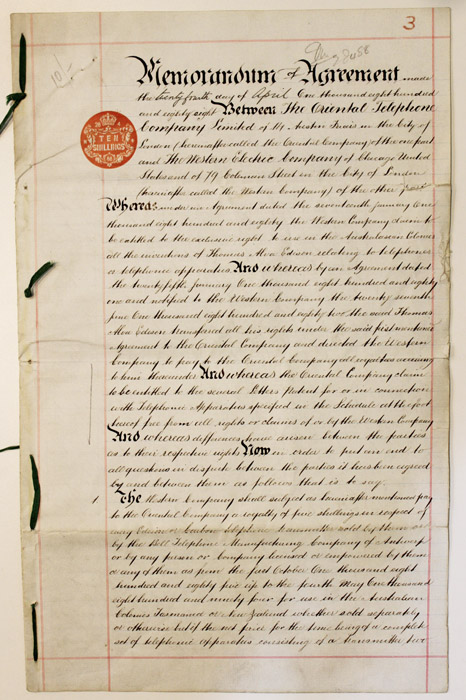 3
10/-
Memorandum of Agreement made
the twenty fourth day of April One thousand eight hundred
and eighty eight Between The Oriental Telephone
Company Limited of 14 Austin Friars in the City of
London (hereinafter called the Oriental Company) of the one part
and The Western Electric Company of Chicago United
States and of 79 Coleman Street in the City of London
(hereinafter called the Western Company) of the other part
Whereas under an Agreement dated the seventeenth January One
thousand eight hundred and eighty the Western Company claim to
be entitled to the exclusive right to use in the Australasian Colonies
all the inventions of Thomas Alva Edison relating to telephones
a telephonic apparatus And whereas by an Agreement dated
the twenty fifth January One thousand eight hundred and eighty
one and notified to the Western Company the twenty seventh
June One thousand eight hundred and eighty two the said Thomas
Alva Edison transferred all his rights under the said first mentioned
Agreement to the Oriental Company and directed the Western
Company to pay to the Oriental Company all royalties accruing
to him thereunder And whereas the Oriental Company claim
to be entitled to the several Letters Patent for or in connection
with Telephonic Apparatus specified in the Schedule at the foot
hereof free from all rights or claims of or by the Western Company
And whereas differences have arisen between the parties
as to their respective rights Now in order to put an end to
all questions in dispute between the parties it has been agreed
by and between them as follows that is to say
1 The Western Company shall subject as hereinafter mentioned pay
to the Oriental Company a royalty of five shillings in respect of
every Edison or Carbon telephonic transmitter sold by them or
by the Bell Telephone Manufacturing Company of Antwerp
or by any person or Company licensed or empowered by them
or any of them as from the first October One thousand eight
hundred and eighty five up to the fourth May One thousand
eight hundred and ninety four for use in the Australian
Colonies Tasmania or New Zealand whether sold separately
or otherwise but if the net price for the time being of a complete
set of telephonic apparatus consisting of a transmitter two
TEN
SHILLINGS